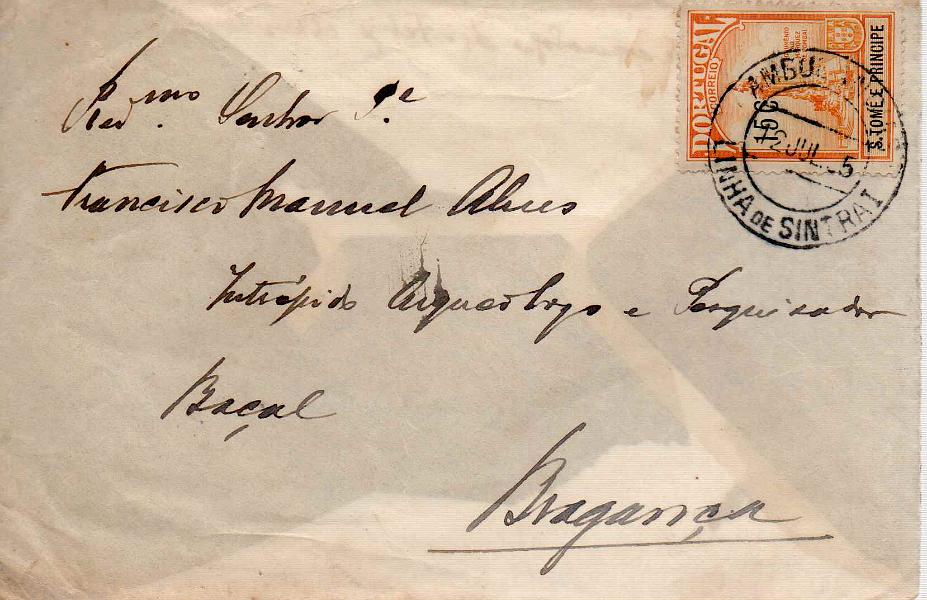 Rev.mo Senhor P.e
Francisco Manuel Alves
Intrépido Arqueologo e Pesquisador
Baçal
Bragança
PORTUGAL
CORREIO
15C
S.TOMÉ E PRINCIPE
LINHA DE SINTRA I